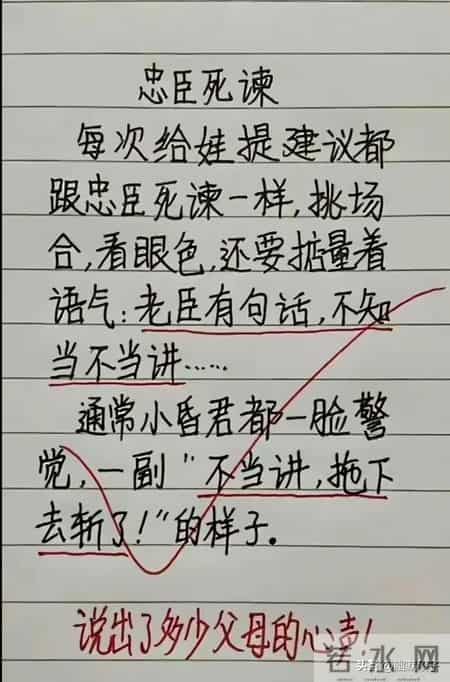 忠臣死谏
每次给娃提建议都
跟忠臣死谏一样,挑场
合,看眼色,还要掂量着
语气:老臣有句话,不知
当不当讲……
通常小昏君都一脸警
觉,一副"不当讲,拖下
去斩了!"的样子。
说出了多少父母的心声!